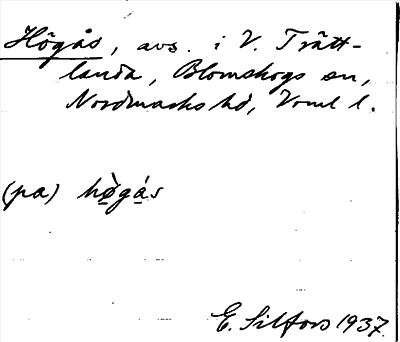 Högås, avs. i V. Trätt-
landa, Blomskogs sn,
Nordmarks hd, Vrml l.
(pa) hø̀gás
E. Silfors 1937.